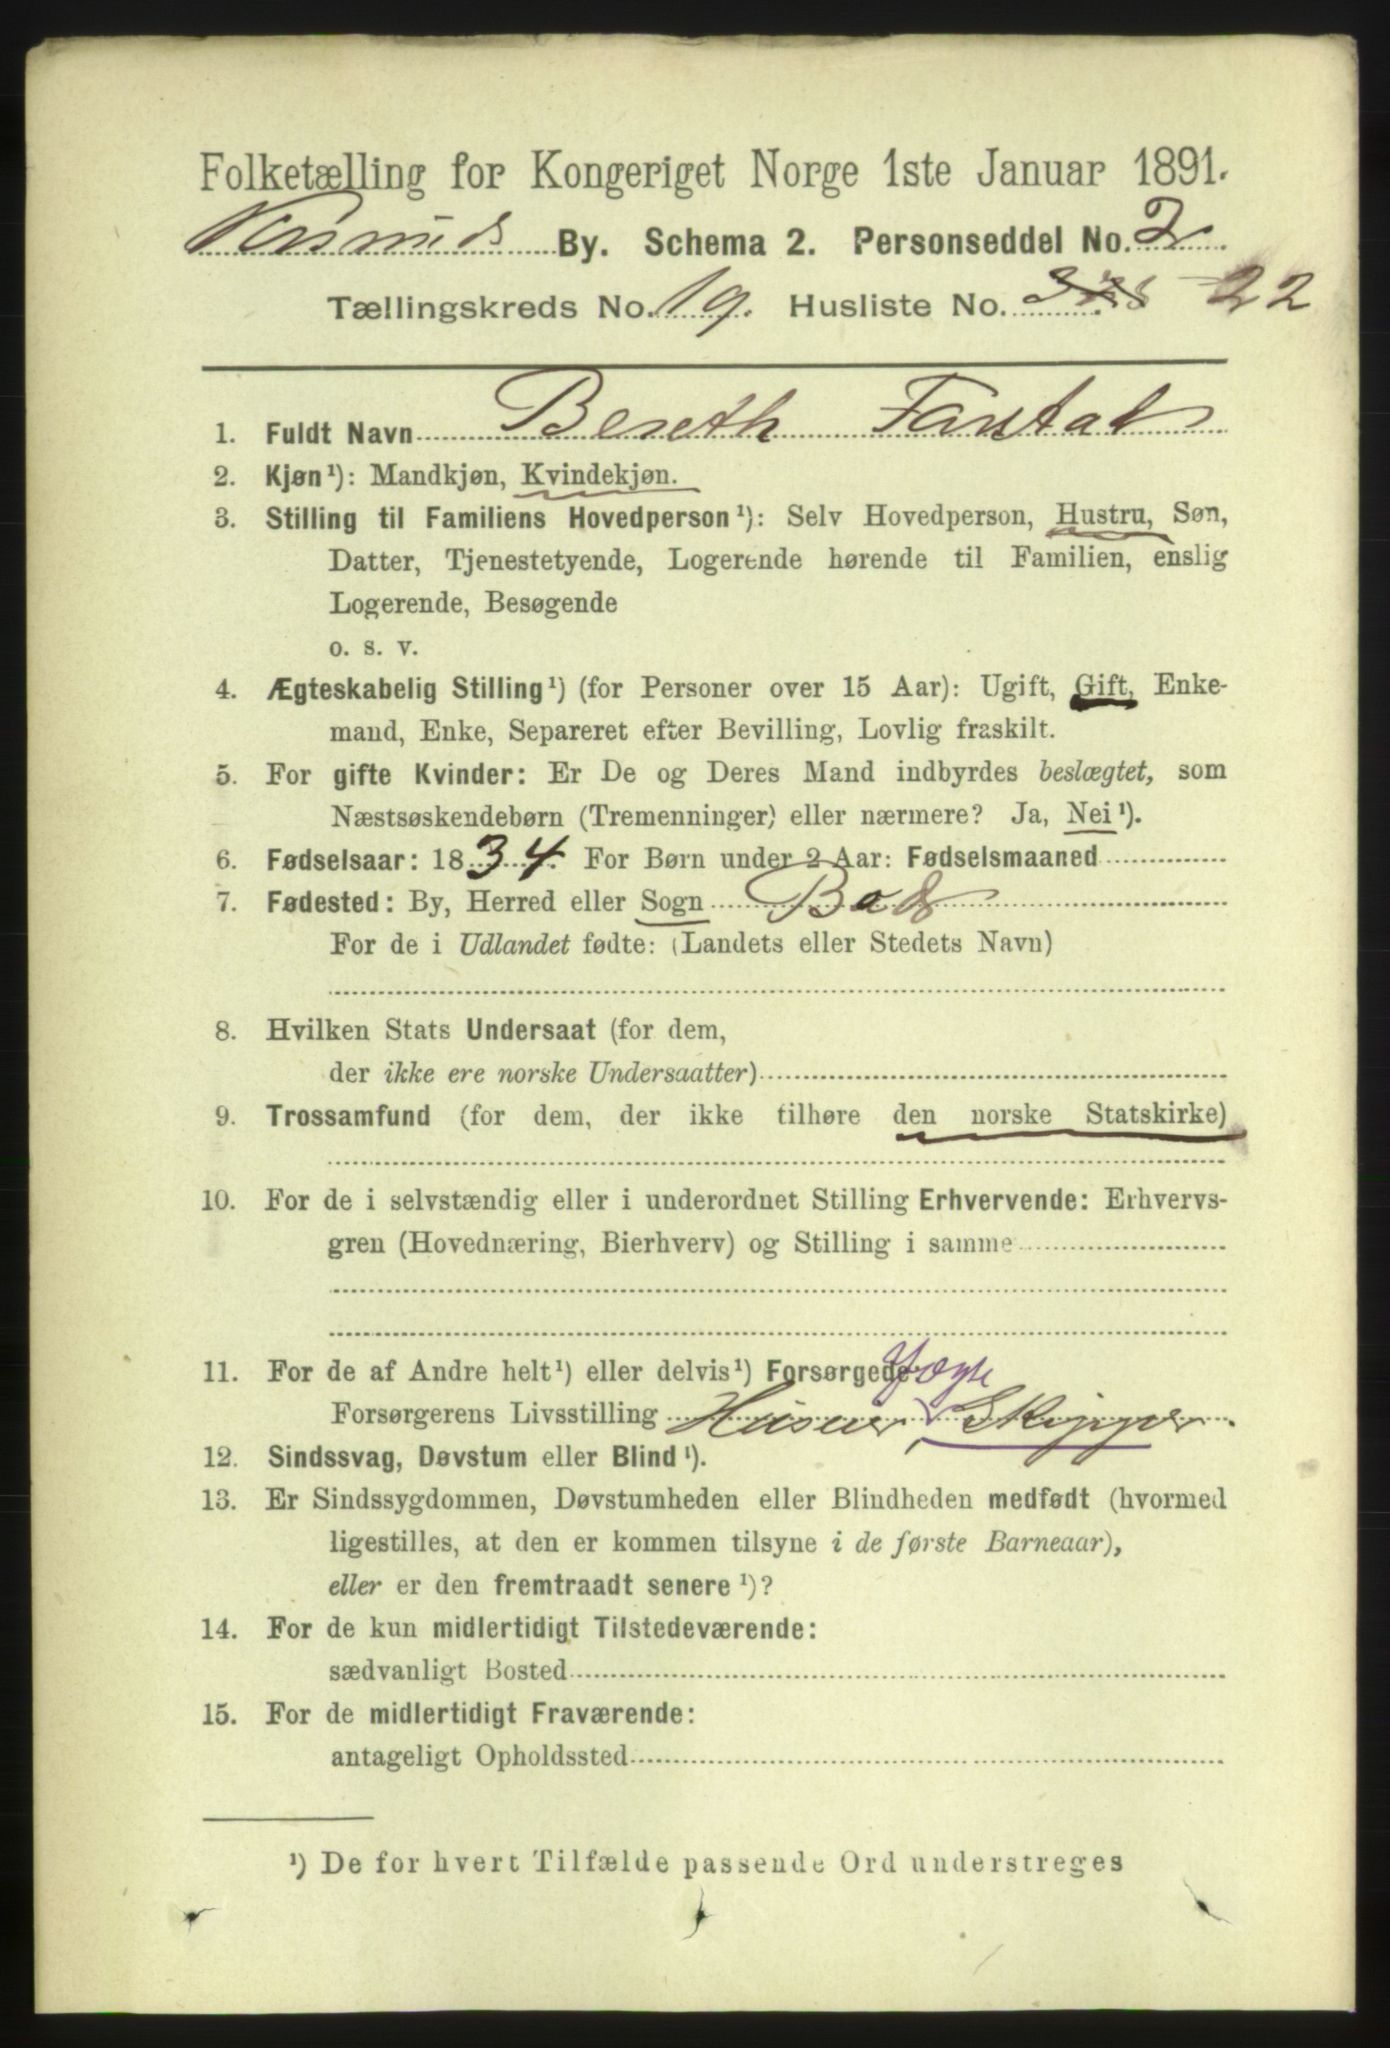 Folketælling for Kongeriget Norge 1ste Januar 1891.
Krsunds By. Schema 2. Personseddel No. 2
Tællingskreds No. 19. Husliste No. 22
1. Fuldt Navn Bereth
2. Kjøn¹): Mandkjøn, Kvindekjøn.
3. Stilling til Familiens Hovedperson¹): Selv Hovedperson, Hustru, Søn,
Datter, Tjenestetyende, Logerende hørende til Familien, enslig
Logerende, Besøgende
o. s. v.
4. Ægteskabelig Stilling¹) (for Personer over 15 Aar): Ugift, Gift, Enke-
mand, Enke, Separeret efter Bevilling, Lovlig fraskilt.
5. For gifte Kvinder: Er De og Deres Mand indbyrdes beslægtet, som
Næstsøskendebørn (Tremenninger) eller nærmere? Ja, Nei¹).
6. Fødselsaar: 1834. For Børn under 2 Aar: Fødselsmaaned
7. Fødested: By, Herred eller Sogn Bod
For de i Udlandet fødte: (Landets eller Stedets Navn)
8. Hvilken Stats Undersaat (for dem,
der ikke ere norske Undersaatter)
9. Trossamfund (for dem, der ikke tilhøre den norske Statskirke)
10. For de i selvstændig eller i underordnet Stilling Erhvervende: Erhvervs-
gren (Hovednæring, Bierhverv) og Stilling i samme
11. For de af Andre helt¹) eller delvis¹) Forsørgede
Forsørgerens Livsstilling Huseier, Skipper.
12. Sindssvag, Døvstum eller Blind¹).
13. Er Sindssygdommen, Døvstumheden eller Blindheden medfødt (hvormed
ligestilles, at den er kommen tilsyne i de første Barneaar),
eller er den fremtraadt senere¹)?
14. For de kun midlertidigt Tilstedeværende:
sædvanligt Bosted
15. For de midlertidigt Fraværende:
antageligt Opholdssted
¹) De for hvert Tilfælde passende Ord understreges